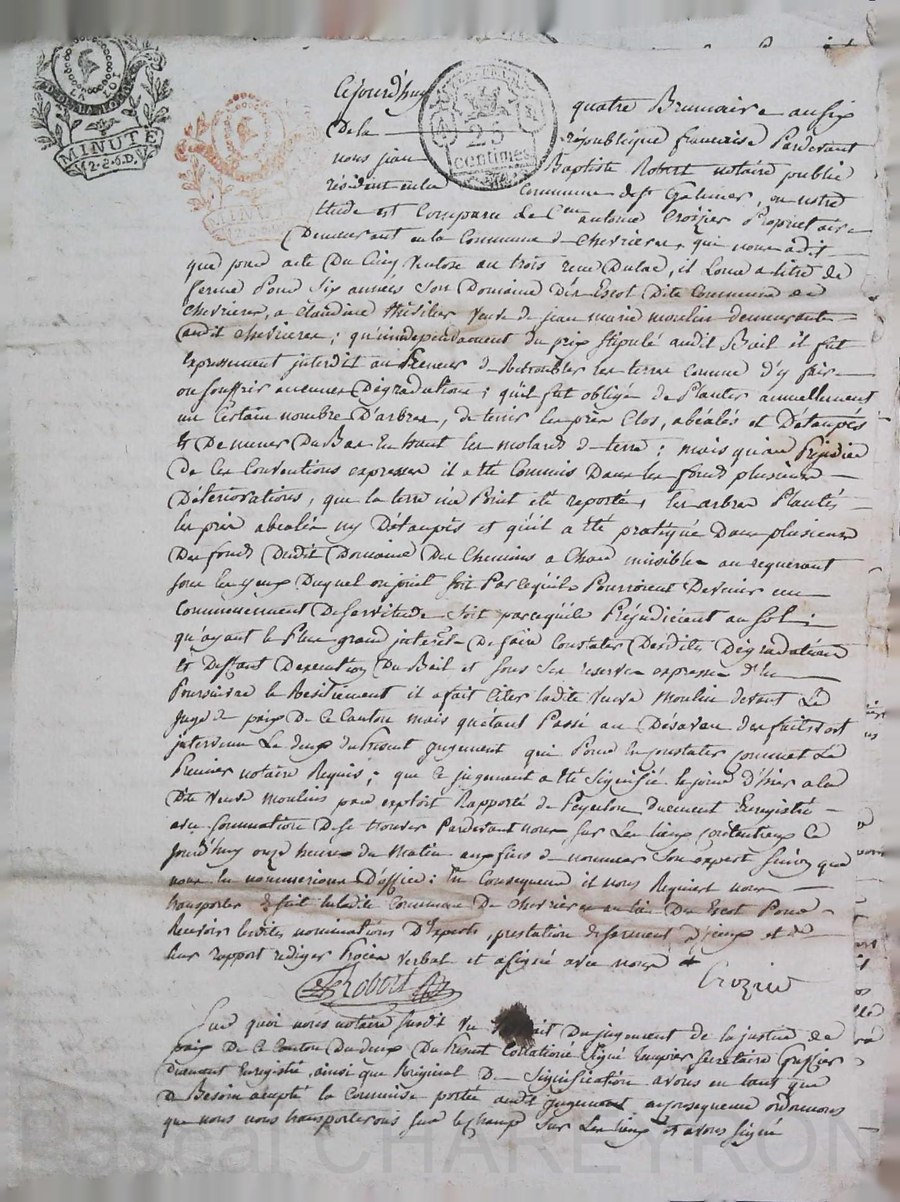 MINUTE
2.2.6.D.
MINUTE
25
centimes
Cejourd'huy quatre Brumaire an six
De la république française Pardevant
nous jean Baptiste Robert notaire public
résident en la Commune de st Galmier, en notre
Etude est Comparu le Cen antoine Crozier Propriétaire
Demeurant en la Commune de chevrieres, qui nous a dit
que par acte Du Cinq Ventose an trois reçu Dulac, il Loua a titre de
ferme Pour Six années Son Domaine Du Escot Dite Commune de
chevrieres, a claudine veuve de jean marie moulin demeurante
audit chevrieres; qu'independament du prix stipulé audit Bail il fut
Expressement interdit au Preneur de les terres comme d'y faire
ou souffrir aucunes Dégradations; qu'il fut obligé de Planter annuellement
un Certain nombre D'arbres, de tenir les prés Clos, abéalés et Détaupés
Et De mener Du Bas En haut les molards de terre; mais qu'au Préjudice
De Ces Conventions expresses il a été Commis Dans les fonds plusieurs
Déteriorations, que la terre n'a Point été reportée, les arbres Plantés
les prés abéalés ny Détaupés et qu'il a été pratiqué Dans plusieurs
Des fonds Dudit Domaine Des Chemins a Char nuisibles au requerant
sous les yeux Duquel on soit Parcequils Pourroient Devenir un
Commencement De servitude soit parcequils Préjudicient au sol;
qu'ayant le Plus grand interêt De faire Constater Desdites Dégradations
Et Deffaut D'execution Du Bail et sous la reserve expresse D'en
Poursuivre le Resiliement il a fait Citer ladite veuve Moulin devant Le
juge de paix De Ce Canton mais qu'etant Passé au Désaveu des faits est
intervenu Le deux du Present jugement qui Pour En constater commet Le
Premier notaire Requis; que Ce jugement a été Signifié le jour D'hier a la
Dite veuve Moulin par exploit Rapporté de Peyrelon Duement Enregistré
avec sommation De se trouver Pardevant nous sur Les lieux contentieux Ce
jourd'huy onze heures du Matin aux fins de nommer Son expert sinon que
nous en nommerions D'office; En Consequence il nous Requiert nous
transporter de suite en ladite Commune De Chevrieres au lieu Du Escot Pour
Recevoir lesdites nominations D'Experts, prestation de serment d'iceux et de
leur rapport rediger Procès verbal et a signé avec nous
Robert Crozier
Sur quoi nous notaire susdit Vu Du jugement de la justice de
paix De Ce Canton Du deux Du Present Collationé Signé Secrétaire Greffier
Duement Enregistré, ainsi que l'original De Signification avons en tant que
De Besoin accepté la Commise portée audit jugement a consequence ordonnons
que nous nous transporterons sur le champ sur Les lieux et avons signé
Pascal CHAREYRON